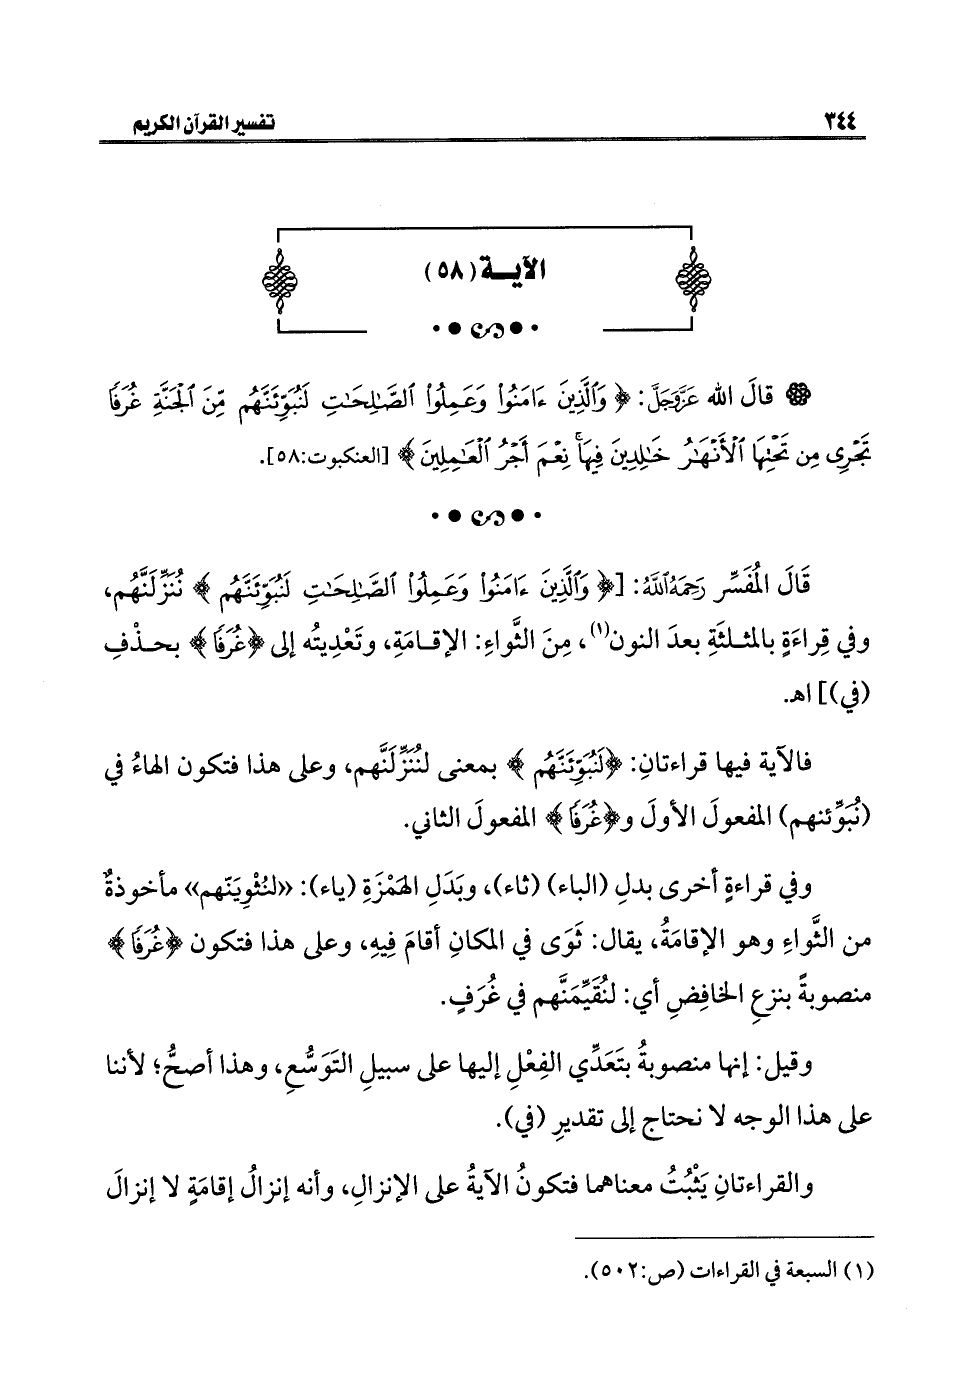 ٣٤٤
تفسير القرآن الكريم
الآيـــة (٥٨)
قالَ الله عَزَّوَجَلَّ: ﴿ وَٱلَّذِينَ ءَامَنُوا۟ وَعَمِلُوا۟ ٱلصَّـٰلِحَـٰتِ لَنُبَوِّئَنَّهُم مِّنَ ٱلْجَنَّةِ غُرَفًا
تَجْرِى مِن تَحْتِهَا ٱلْأَنْهَـٰرُ خَـٰلِدِينَ فِيهَا ۚ نِعْمَ أَجْرُ ٱلْعَـٰمِلِينَ ﴾ [العنكبوت:٥٨].
قَالَ المُفَسِّر رَحِمَهُ اللَّهُ: [﴿ وَٱلَّذِينَ ءَامَنُوا۟ وَعَمِلُوا۟ ٱلصَّـٰلِحَـٰتِ لَنُبَوِّئَنَّهُم ﴾ نُنَزِّلَنَّهُم،
وفي قِراءَةٍ بالمثلثَةِ بعدَ النون(١)، مِنَ الثَّواءِ: الإقـامَةِ، وتَعْدِيتُه إلى ﴿غُرَفًا﴾ بحـذْفِ
(في)] اهـ.
فالآية فيها قراءتانِ: ﴿لَنُبَوِّئَنَّهُم ﴾ بمعنى لنُنَزِّلَنَّهم، وعلى هذا فتكون الهاءُ في
(نُبَوِّئنهم) المفعولَ الأولَ و﴿غُرَفًا﴾ المفعولَ الثاني.
وفي قراءةٍ أخرى بدلِ (الباء) (ثاء)، وبَدَلِ الهَمْزَةِ (ياء): «لنُثْوِيَنّهم» مأخوذةٌ
من الثَّواءِ وهو الإقامَةُ، يقال: ثَوَى في المكانِ أقامَ فِيهِ، وعلى هذا فتكون ﴿غُرَفًا﴾
منصوبةً بنزعِ الخافِضِ أي: لنُقَيِّمَنَّهم في غُرَفٍ.
وقيل: إنها منصوبةُ بتَعَدِّي الفِعْلِ إليها على سبيلِ التَوَسُّعِ، وهذا أصحُّ؛ لأننا
على هذا الوجه لا نحتاج إلى تقديرِ (في).
والقراءتانِ يَثْبُتُ معناهما فتكونُ الآيةُ على الإنزالِ، وأنه إنزالُ إقامَةٍ لا إنزالَ
(١) السبعة في القراءات (ص:٥٠٢).